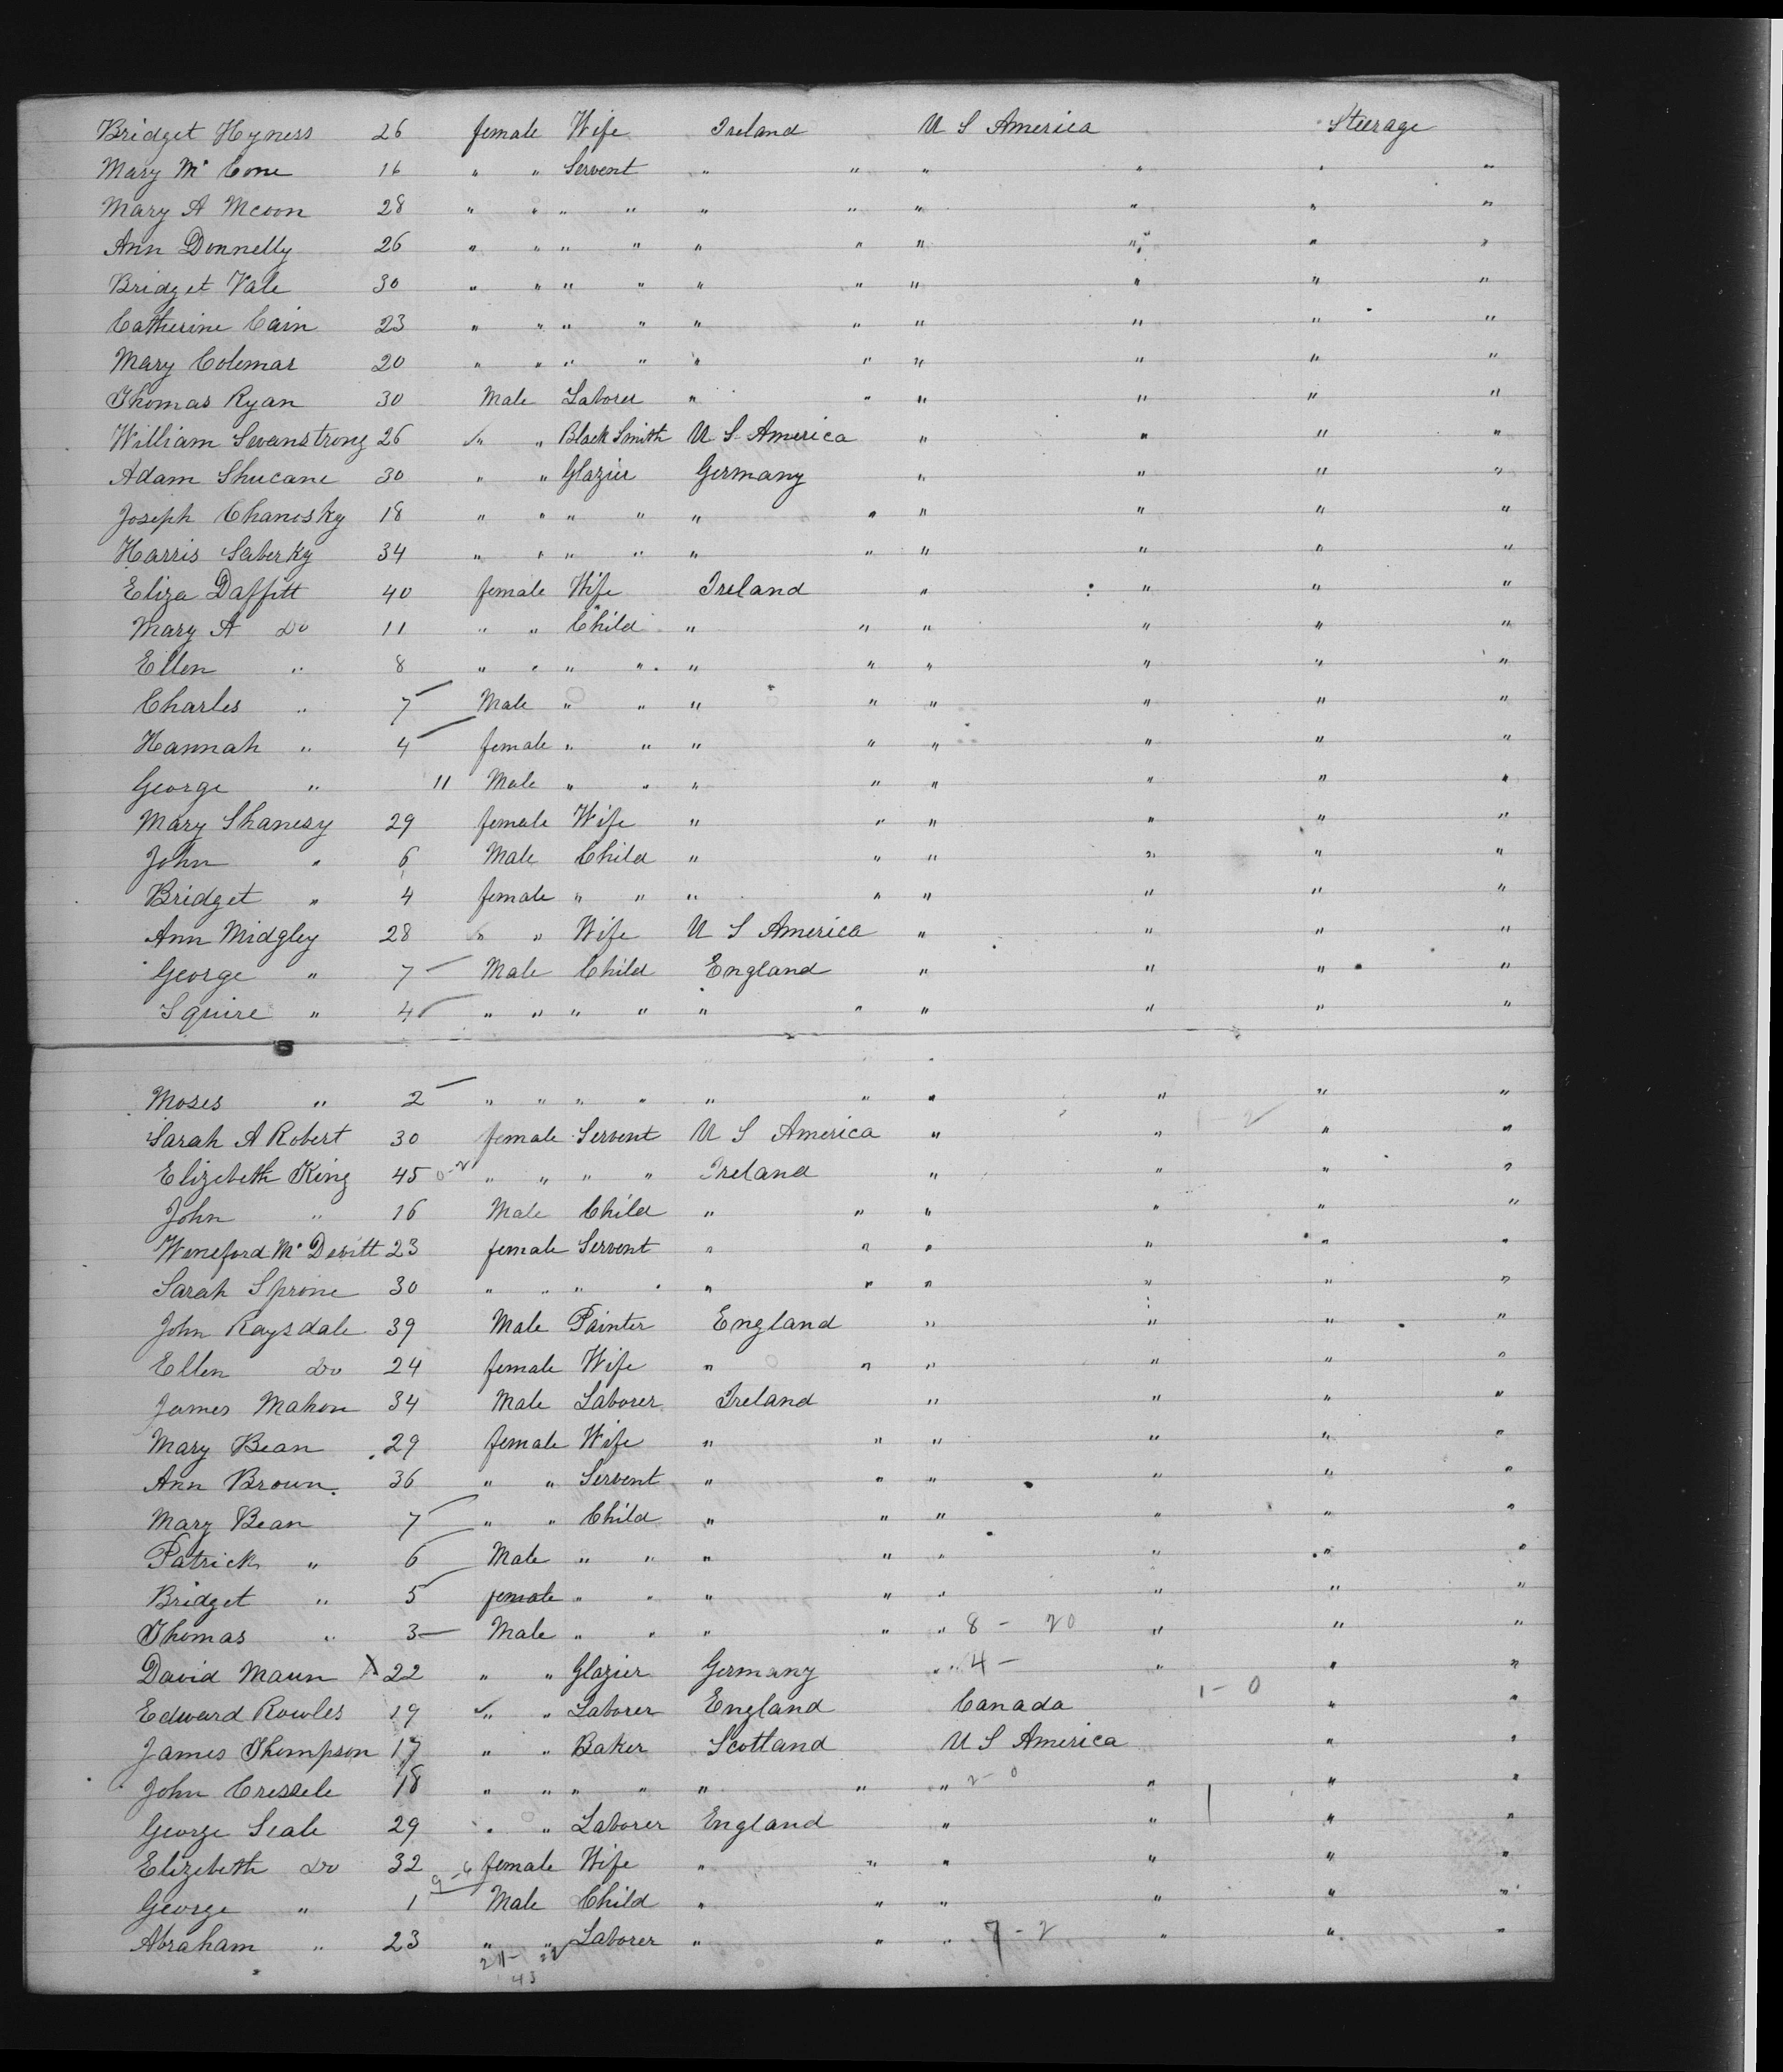 Bridget Hyness 26 female Wife Ireland U S America Steerage
Mary Mc Cone 16 " " Servent " " " " " "
Mary A Mcoon 28 " " " " " " " " " "
Ann Donnelly 26 " " " " " " " " " "
Bridget Vale 30 " " " " " " " " " "
Catherine Cain 23 " " " " " " " " " "
Mary Colemar 20 " " " " " " " " " "
Thomas Ryan 30 Male Laborer " " " " " "
William Swanstrong 26 " " Black Smith U S America " " " "
Adam Shucane 30 " " Glazier Germany " " " "
Joseph Chanosky 18 " " " " " " " " " "
Harris Saberky 34 " " " " " " " " " "
Eliza Daffitt 40 female Wife Ireland " " " "
Mary A Do 11 " " Child " " " " " "
Ellen " 8 " " " " " " " " " "
Charles " 7 Male " " " " " " " "
Hannah " 4 female " " " " " " " "
George " 11 Male " " " " " " " "
Mary Shanesy 29 female Wife " " " " " "
John " 6 Male Child " " " " " "
Bridget " 4 female " " " " " " " "
Ann Midgley 28 " " Wife U S America " " " "
George " 7 Male Child England " " " "
Squire " 4 " " " " " " " " " "
Moses " 2 " " " " " " " " " "
Sarah A Robert 30 female Servent U S America " " 1-2 " "
Elizebeth King 45 0-2 " " " " Ireland " " " "
John " 16 Male Child " " " " " "
Wineford Mc Devitt 23 female Servent " " " " " "
Sarah Sprone 30 " " " " " " " " " "
John Raysdale 39 Male Painter England " " " "
Ellen Do 24 female Wife " " " " " "
James Mahon 34 Male Laborer Ireland " " " "
Mary Bean 29 female Wife " " " " " "
Ann Brown 36 " " Servent " " " " " "
Mary Bean 7 " " Child " " " " " "
Patrick " 6 Male " " " " " " " "
Bridget " 5 female " " " " " " " "
Thomas " 3 Male " " " " " 8 - 20 " " "
David Maun X 22 " " Glazier Germany " 4 - " " "
Edward Rowles 19 " " Laborer England Canada 1-0 " "
James Thompson 17 " " Baker Scotland U S America " "
John Cressele 18 " " " " " " " 2-0 " " "
George Seale 29 " " Laborer England " " " "
Elizebeth Do 32 female Wife " " " " " "
George " 1 Male Child " " " " " "
Abraham " 23 " " Laborer " " " 7-2 " " "